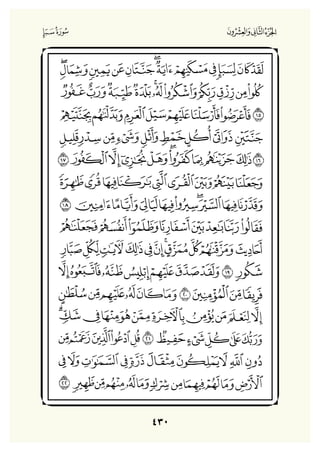 الجزء الثاني والعشرون سورة سبأ
لَقَدْ كَانَ لِسَبَإٍ فِي مَسْكَنِهِمْ ءَايَةٌ ۖ جَنَّتَانِ عَن يَمِينٍ وَشِمَالٍ ۖ
كُلُوا۟ مِن رِّزْقِ رَبِّكُمْ وَٱشْكُرُوا۟ لَهُۥ ۚ بَلْدَةٌ طَيِّبَةٌ وَرَبٌّ غَفُورٌ
١٥ فَأَعْرَضُوا۟ فَأَرْسَلْنَا عَلَيْهِمْ سَيْلَ ٱلْعَرِمِ وَبَدَّلْنَٰهُم بِجَنَّتَيْهِمْ
جَنَّتَيْنِ ذَوَاتَىْ أُكُلٍ خَمْطٍ وَأَثْلٍ وَشَىْءٍ مِّن سِدْرٍ قَلِيلٍ
١٦ ذَٰلِكَ جَزَيْنَٰهُم بِمَا كَفَرُوا۟ ۖ وَهَلْ نُجَٰزِىٓ إِلَّا ٱلْكَفُورَ ١٧
وَجَعَلْنَا بَيْنَهُمْ وَبَيْنَ ٱلْقُرَى ٱلَّتِى بَٰرَكْنَا فِيهَا قُرًى ظَٰهِرَةً
وَقَدَّرْنَا فِيهَا ٱلسَّيْرَ ۖ سِيرُوا۟ فِيهَا لَيَالِىَ وَأَيَّامًا ءَامِنِينَ ١٨
فَقَالُوا۟ رَبَّنَا بَٰعِدْ بَيْنَ أَسْفَارِنَا وَظَلَمُوٓا۟ أَنفُسَهُمْ فَجَعَلْنَٰهُمْ
أَحَادِيثَ وَمَزَّقْنَٰهُمْ كُلَّ مُمَزَّقٍ ۚ إِنَّ فِى ذَٰلِكَ لَءَايَٰتٍ لِّكُلِّ صَبَّارٍ
شَكُورٍ ١٩ وَلَقَدْ صَدَّقَ عَلَيْهِمْ إِبْلِيسُ ظَنَّهُۥ فَٱتَّبَعُوهُ إِلَّا
فَرِيقًا مِّنَ ٱلْمُؤْمِنِينَ ٢٠ وَمَا كَانَ لَهُۥ عَلَيْهِم مِّن سُلْطَٰنٍ
إِلَّا لِنَعْلَمَ مَن يُؤْمِنُ بِٱلْءَاخِرَةِ مِمَّنْ هُوَ مِنْهَا فِى شَكٍّ ۗ
وَرَبُّكَ عَلَىٰ كُلِّ شَىْءٍ حَفِيظٌ ٢١ قُلِ ٱدْعُوا۟ ٱلَّذِينَ زَعَمْتُم مِّن
دُونِ ٱللَّهِ لَا يَمْلِكُونَ مِثْقَالَ ذَرَّةٍ فِى ٱلسَّمَٰوَٰتِ وَلَا فِى
ٱلْأَرْضِ وَمَا لَهُمْ فِيهِمَا مِن شِرْكٍ وَمَا لَهُۥ مِنْهُم مِّن ظَهِيرٍ ٢٢
٤٣٠